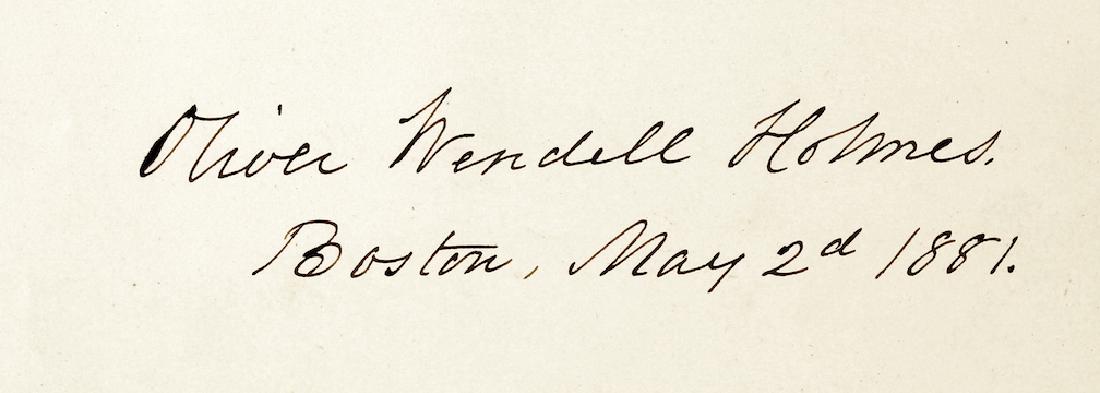 Oliver Wendell Holmes.
Boston, May 2d 1881.